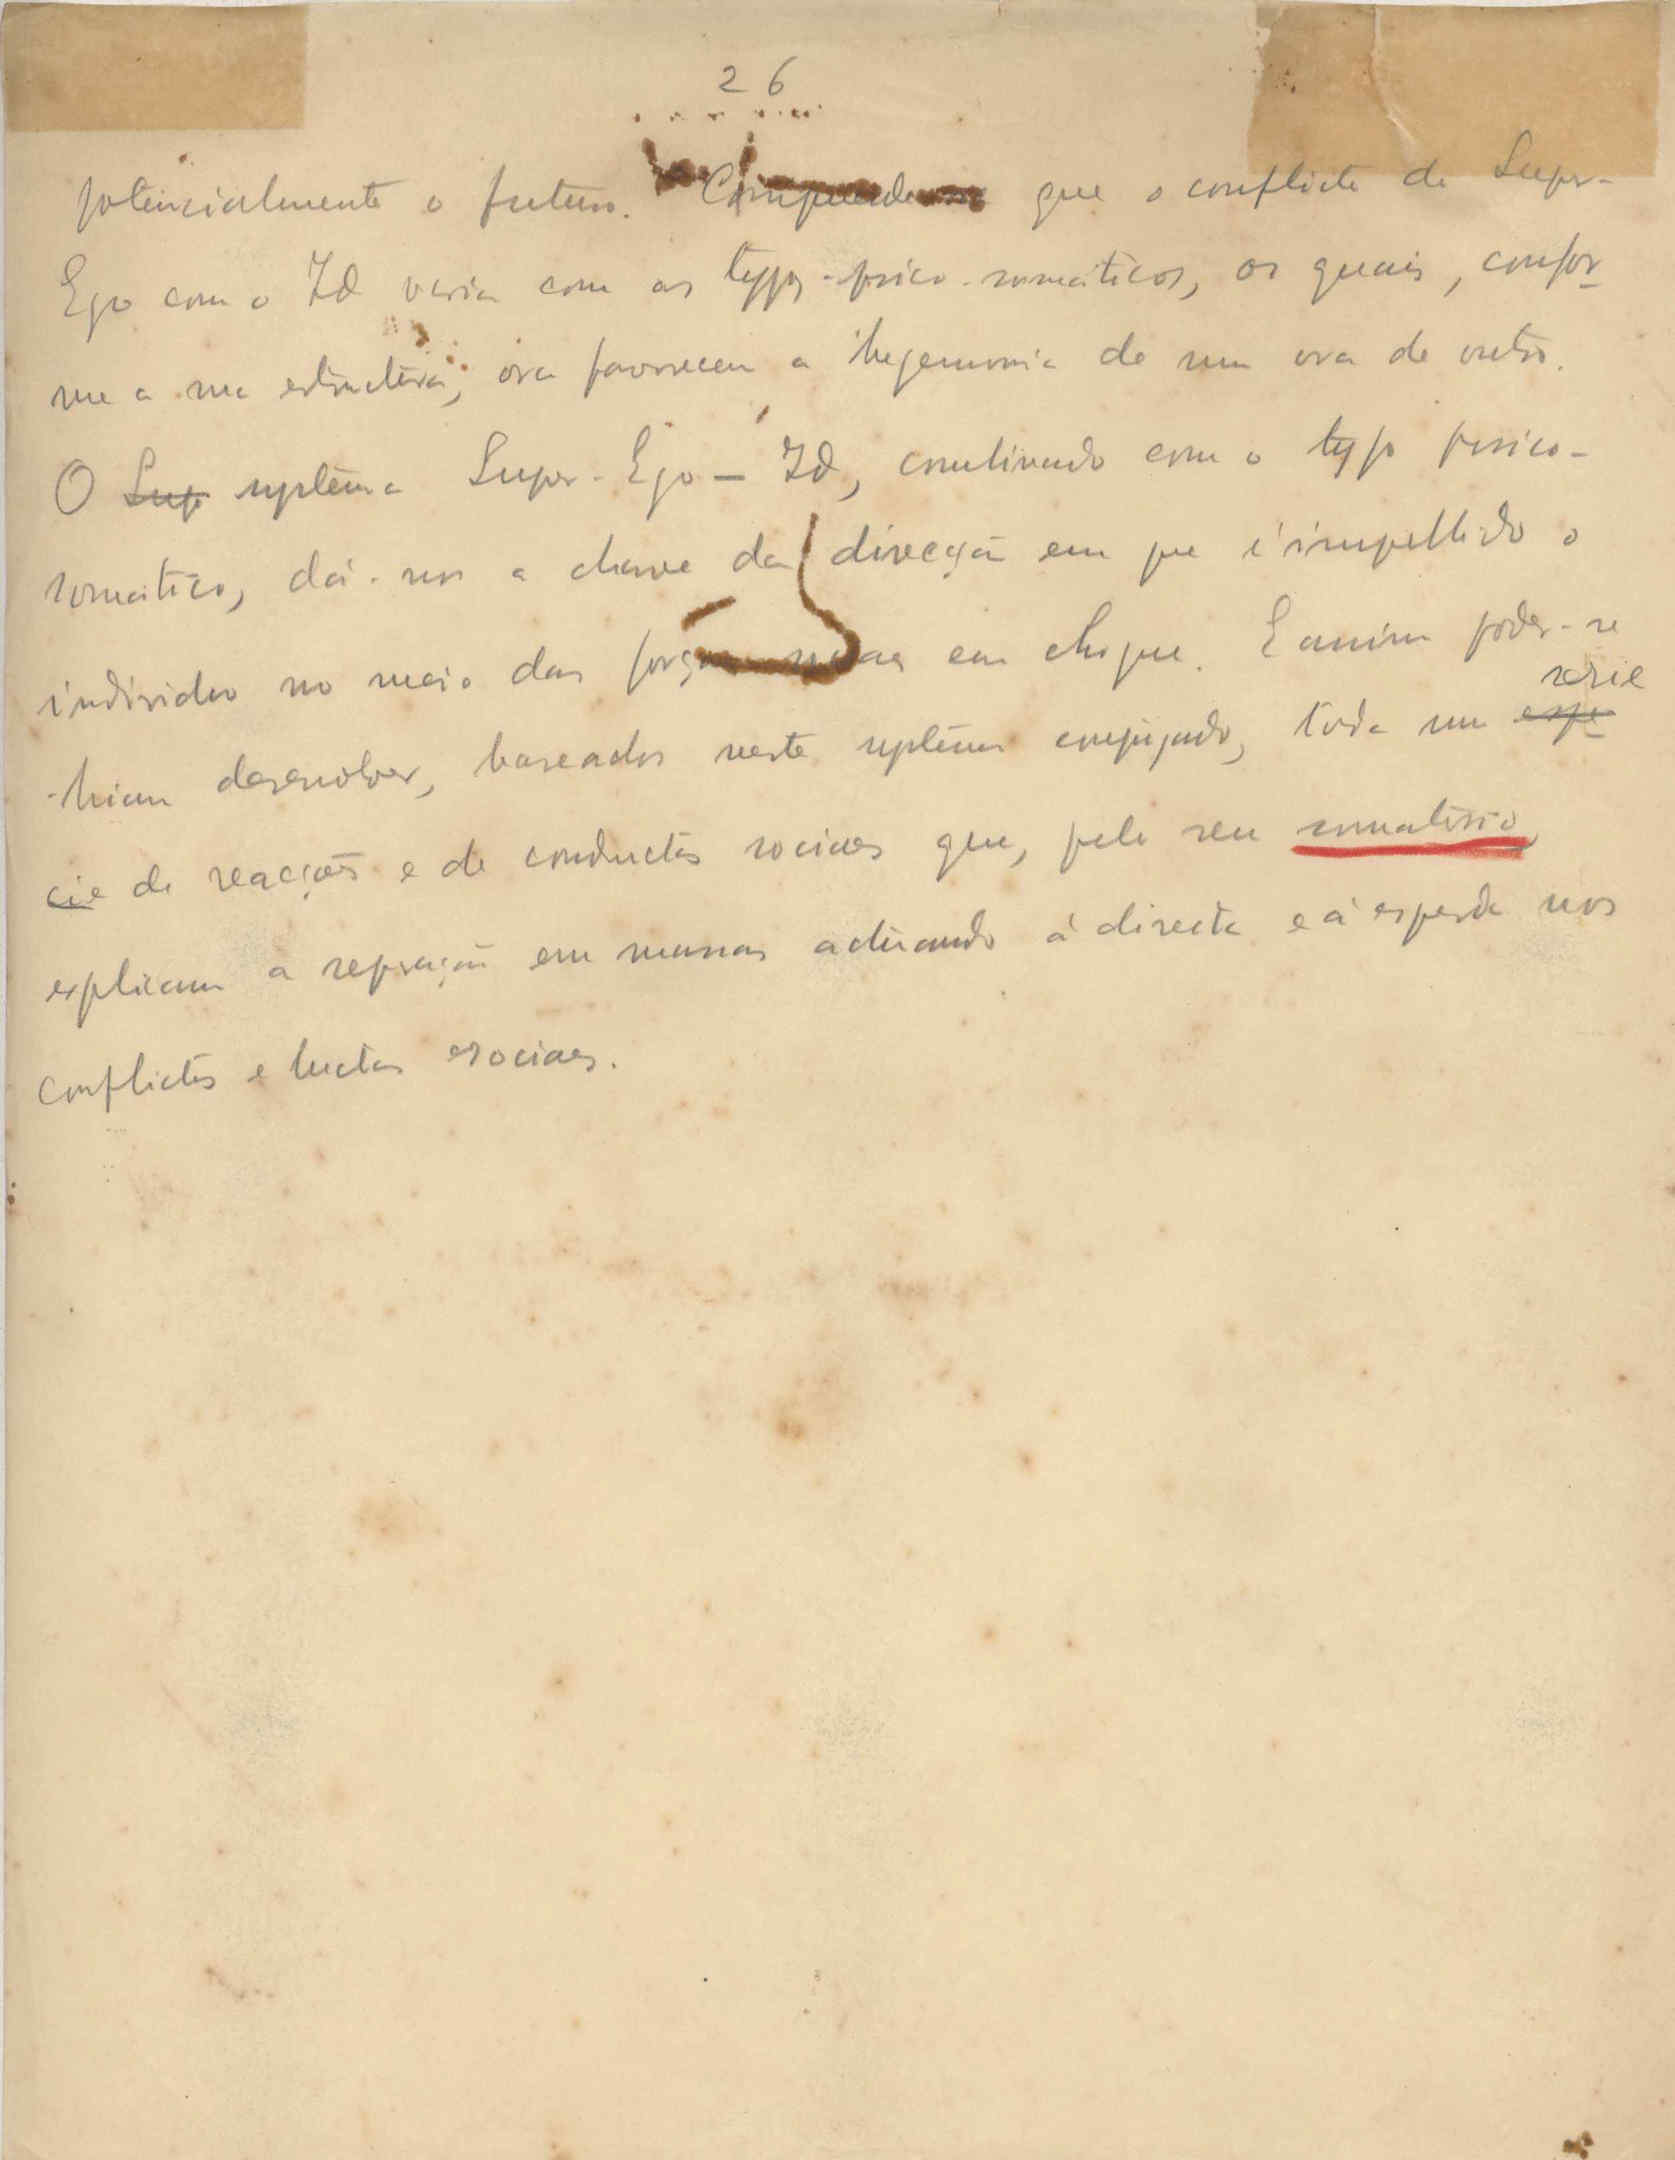 26
potencialmente o futuro. Comprehende-se que o conflicto do Super-
Ego com o Id varia com os typos-psico-somaticos, os quais, confor
me a sua estructura, ora favorecem a hegemonia de um ora de outro.
O Sup systema Super-Ego — Id, combinado com o typo psico-
somatico, dá-nos a chave da direcção em que é impellido o
individuo no meio das forças em choque. E assim poder-se
-hiam desenvolver, baseados neste systema conjugado, toda uma espe serie
cie de reacções e de conductas sociaes que, pelo seu somatorio,
explicam a separação em massas actuando á direita e á esquerda nos
conflictos e luctas sociaes.